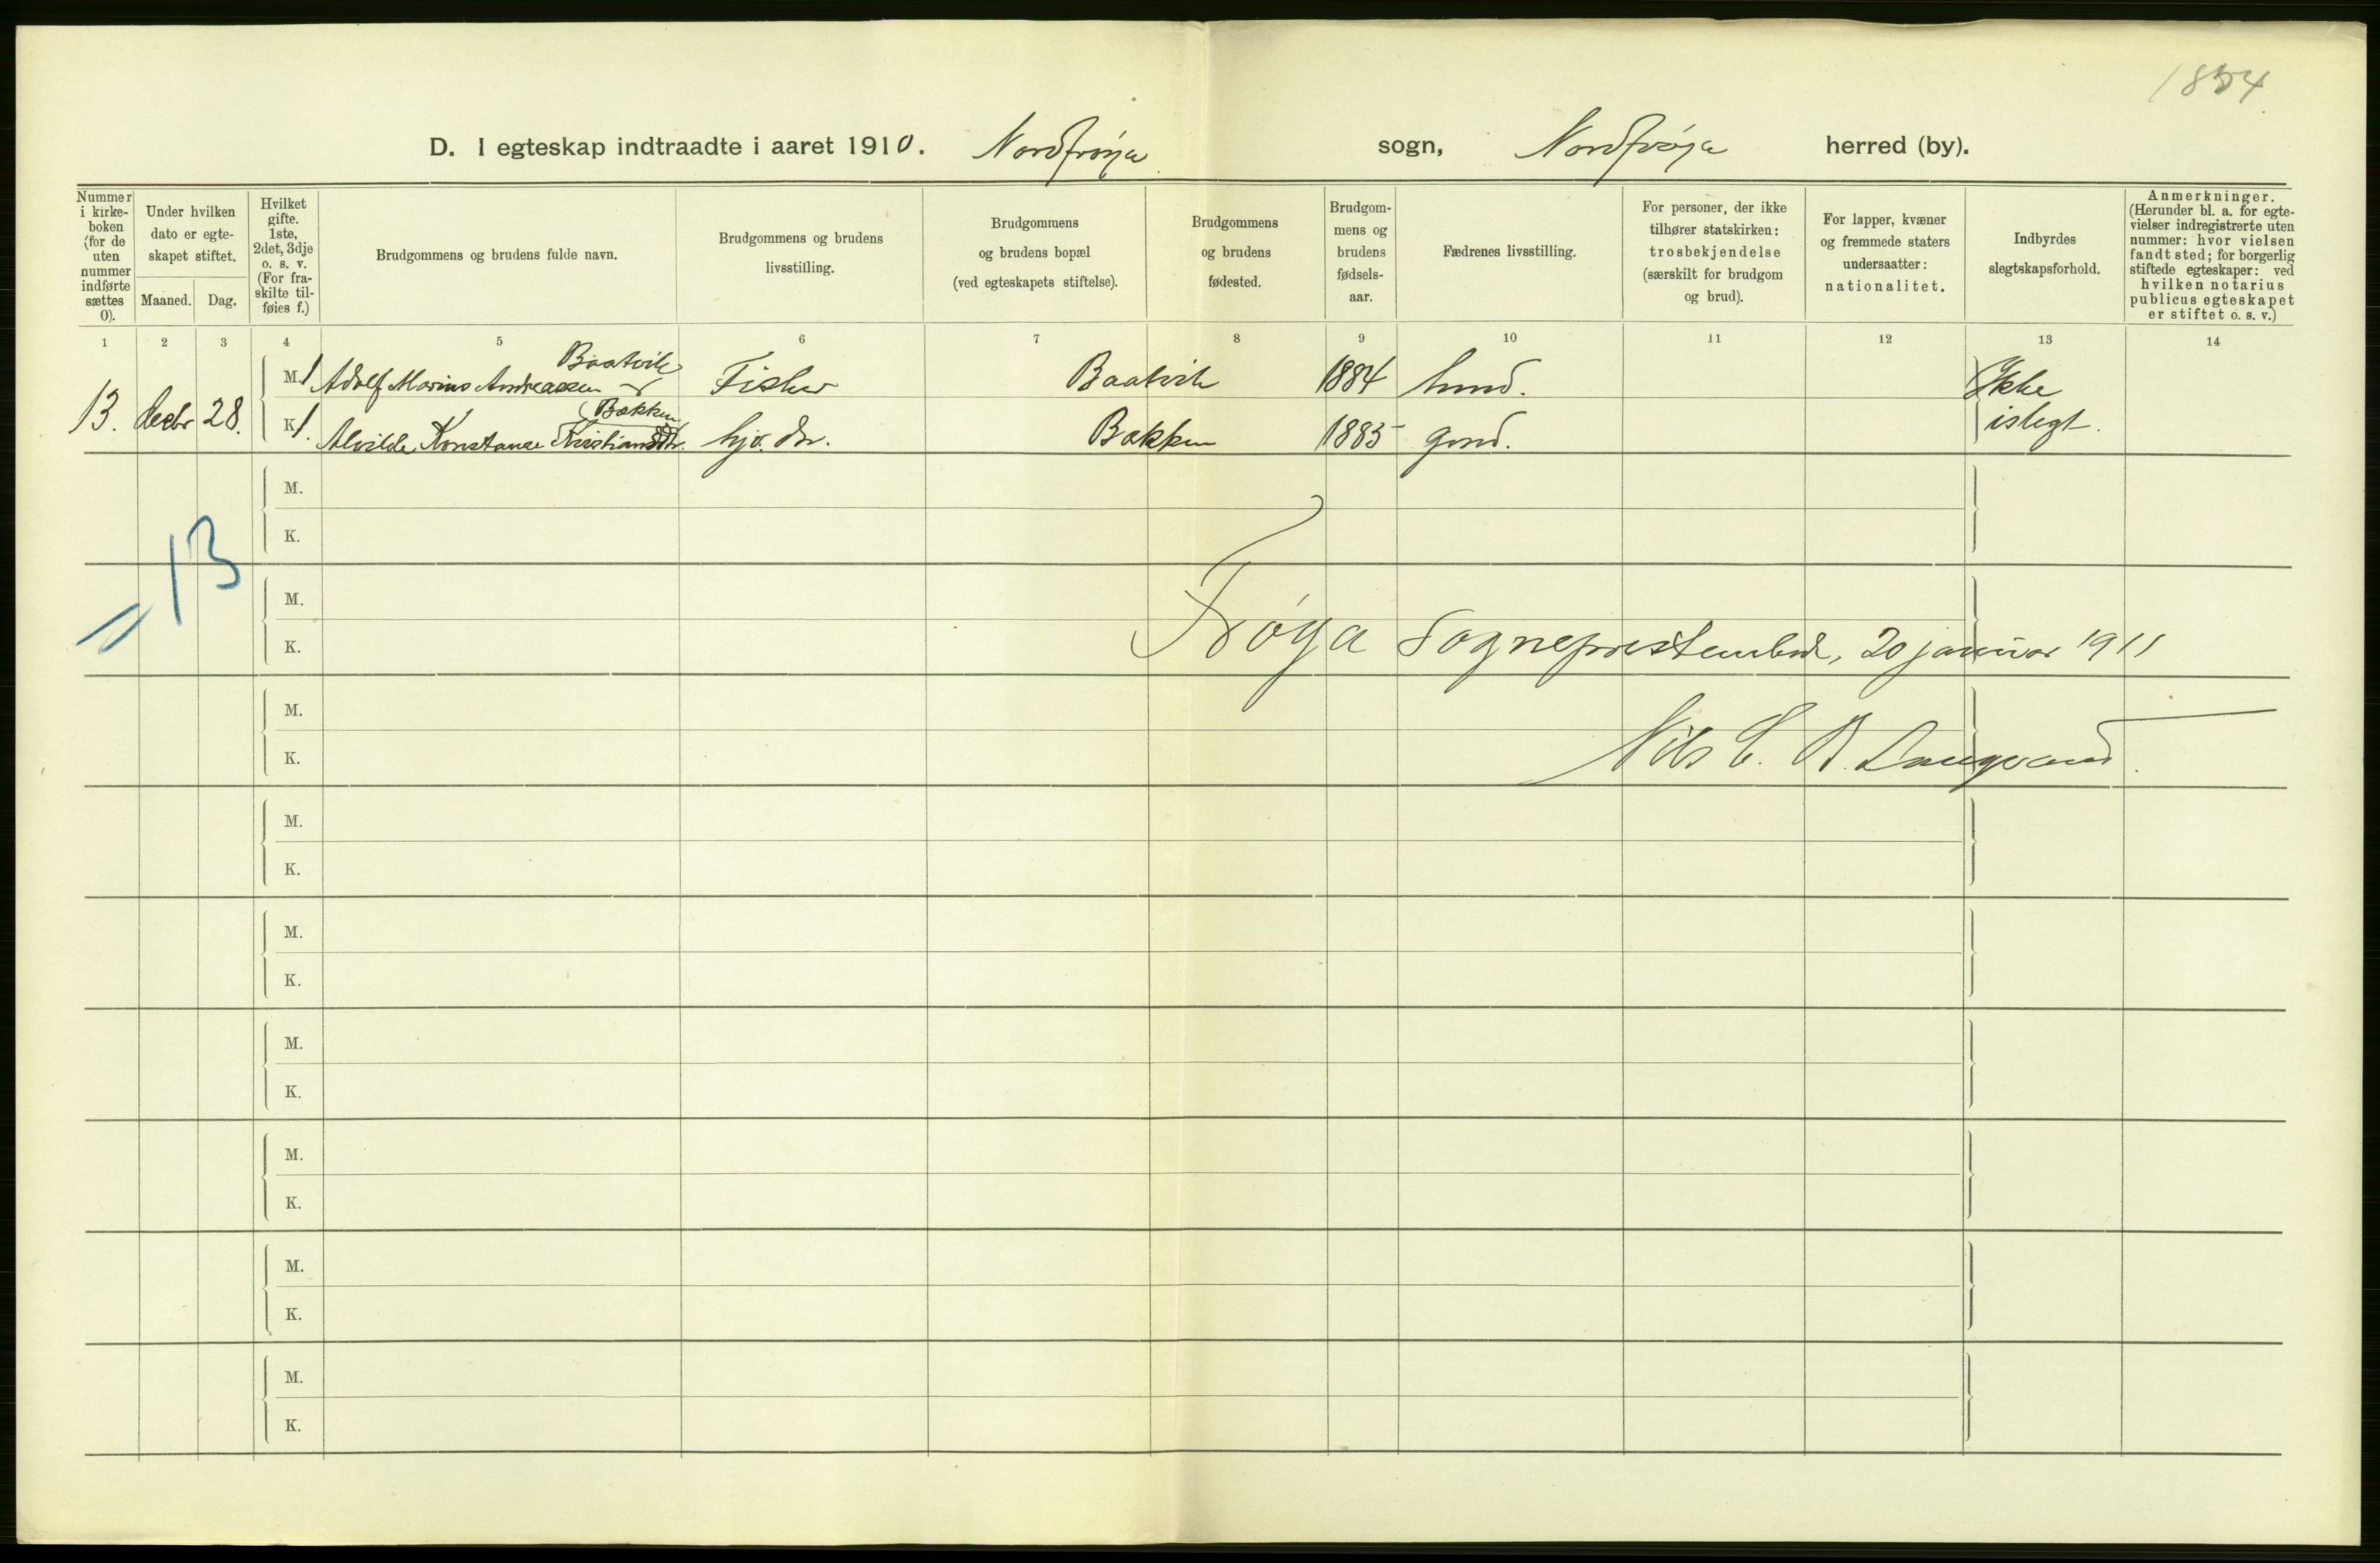 1854
D. I egteskap indtraadte i aaret 1910. Nordfrøya sogn, Nordfrøya herred (by).
Nummer i kirke-boken (for de uten nummer indførte sættes 0).
Under hvilken dato er egte-skapet stiftet.
Maaned. Dag.
Hvilket gifte. 1ste, 2det, 3dje o. s. v. (For fra-skilte til-føies f.)
Brudgommens og brudens fulde navn.
Brudgommens og brudens livsstilling.
Brudgommens og brudens bopæl (ved egteskapets stiftelse).
Brudgommens og brudens fødested.
Brudgom-mens og brudens fødsels-aar.
Fædrenes livsstilling.
For personer, der ikke tilhører statskirken: trosbekjendelse (særskilt for brudgom og brud).
For lapper, kvæner og fremmede staters undersaatter: nationalitet.
Indbyrdes slegtskapsforhold.
Anmerkninger. (Herunder bl. a. for egte-vielser indregistrerte uten nummer: hvor vielsen fandt sted; for borgerlig stiftede egteskaper: ved hvilken notarius publicus egteskapet er stiftet o. s. v.)
1 2 3 4 5 6 7 8 9 10 11 12 13 14
Baatvik
M. 1 Adolf Marius Andreassen Fisker Baatvik 1884 husmd. Ikke
13. decbr 28.
Bakken
K. 1. Alvilde Konstanse Kristiansdtr. hj. v. dtr. Bakken 1885 grmd. i slegt.
M.
K.
13
M.
K.
Frøya sogneprestembede, 20 januar 1911
M.
Nils C. B.
K.
M.
K.
M.
K.
M.
K.
M.
K.
M.
K.
M.
K.